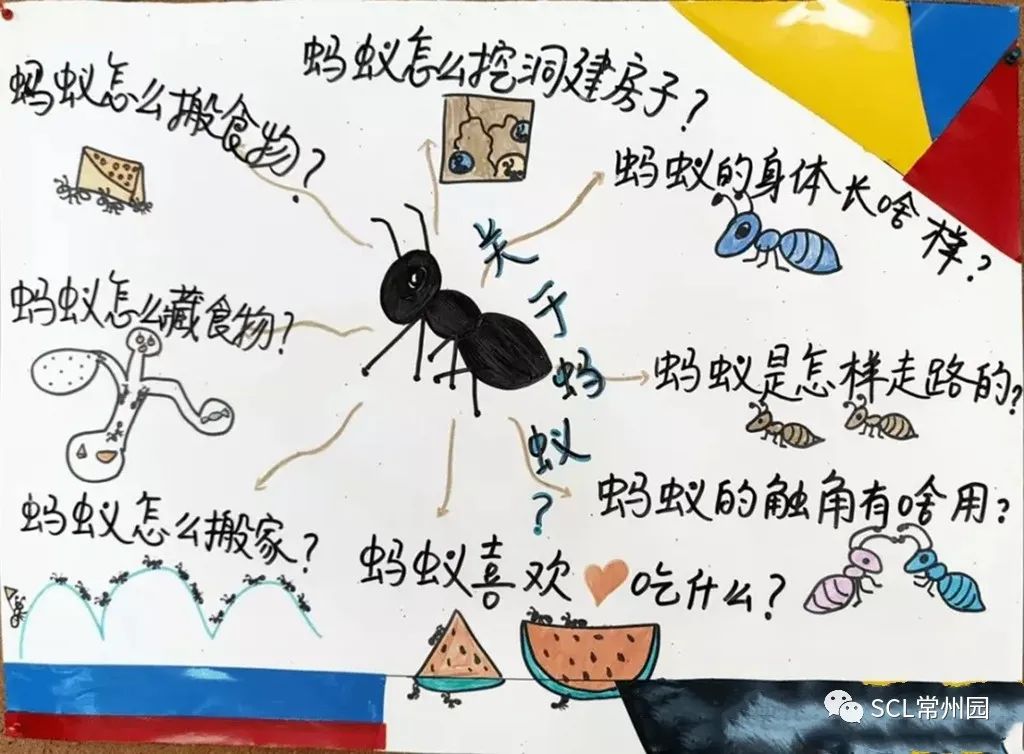 蚂蚁怎么搬食物?
蚂蚁怎么挖洞建房子?
蚂蚁的身体长啥样?
关于蚂蚁?
蚂蚁怎么藏食物?
蚂蚁是怎样走路的?
蚂蚁的触角有啥用?
蚂蚁怎么搬家?
蚂蚁喜欢吃什么?
SCL常州园